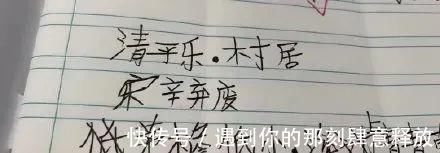 清平乐·村居
宋 辛弃废
快传号/遇到你的那刻肆意释放